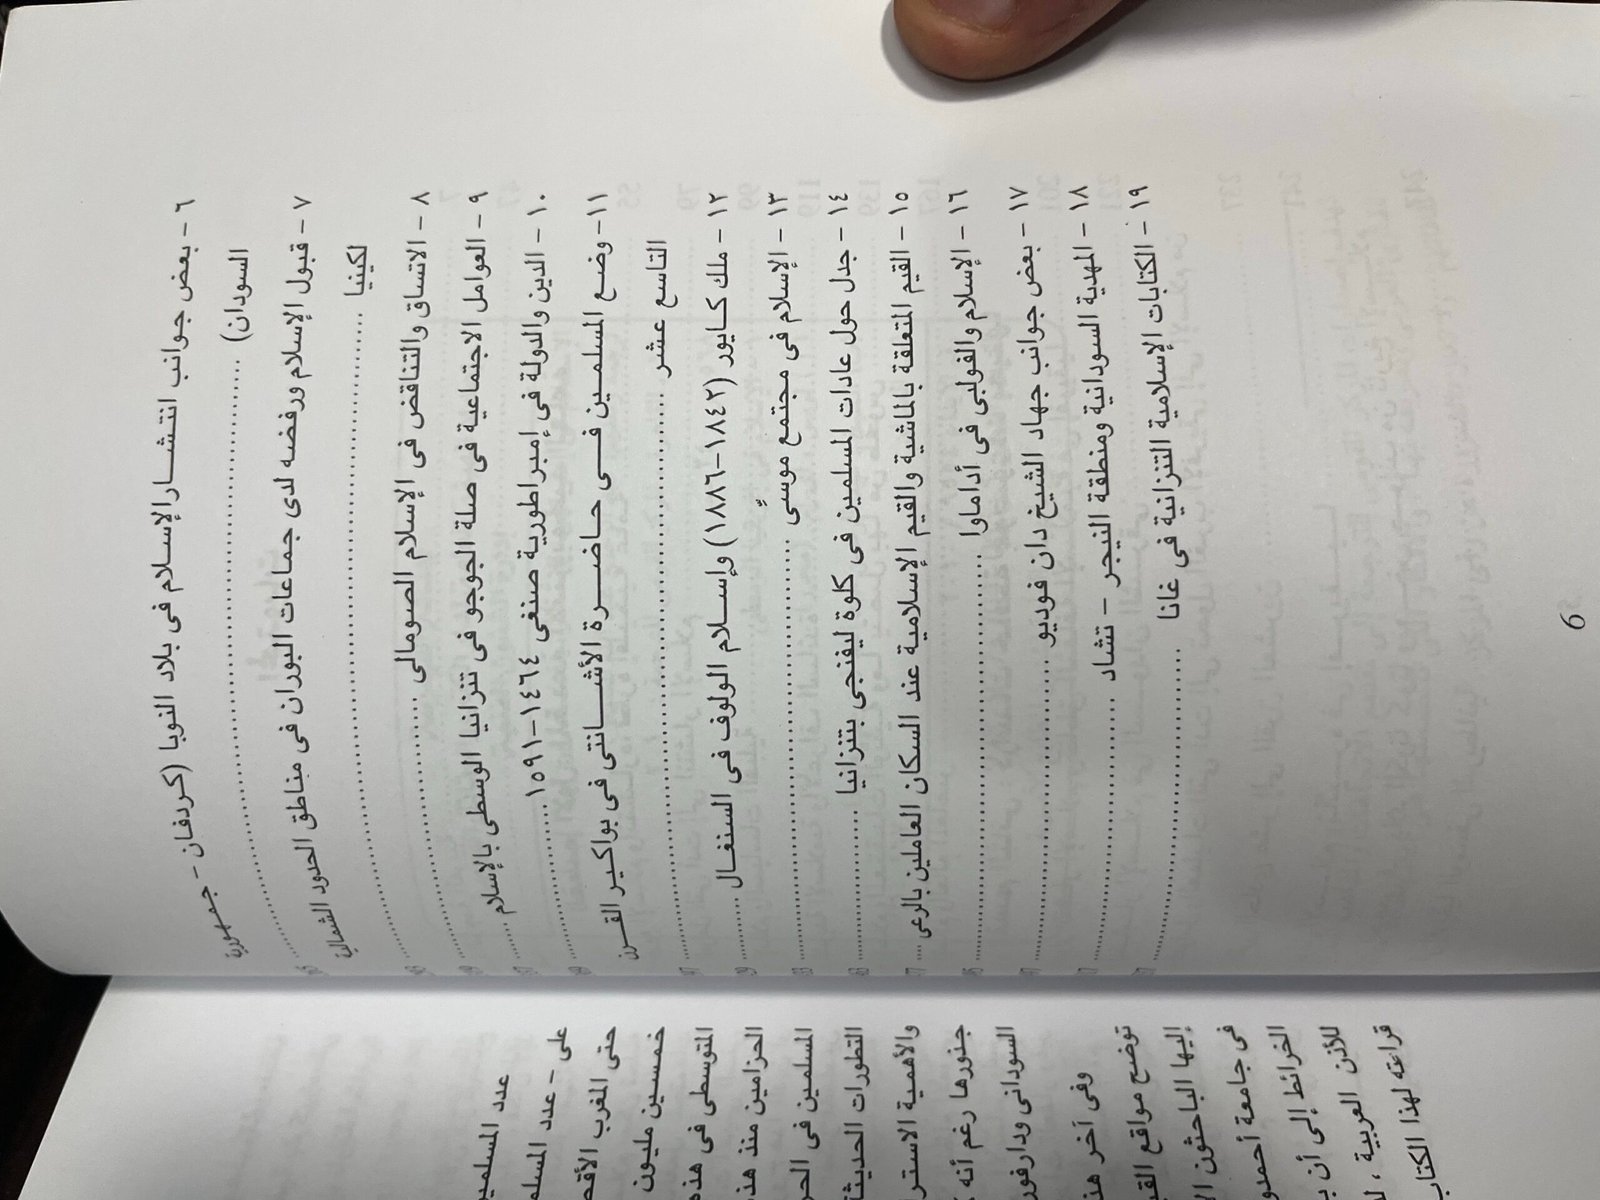 ٦ - بعض جوانب انتشار الإسلام فى بلاد النوبا (كردفان - جمهورية
السودان)
٧ - قبول الإسلام ورفضه لدى جماعات البوران فى مناطق الحدود الشمالية
لكينيا
٨ - الاتساق والتناقض فى الإسلام الصومالى
٩ - العوامل الاجتماعية فى صلة الجوجو فى تنزانيا الوسطى بالإسلام
١٠ - الدين والدولة فى إمبراطورية صنغى ١٤٦٤-١٥٩١
١١- وضع المسلمين فى حاضرة الأشانتى فى بواكير القرن
التاسع عشر
١٢ - ملك كايور (١٨٤٢-١٨٨٦) وإسلام الولوف فى السنغال
١٣ - الإسلام فى مجتمع موسىٍ
١٤ - جدل حول عادات المسلمين فى كلوة ليفنجى بتنزانيا
١٥ - القيم المتعلقة بالماشية والقيم الإسلامية عند السكان العاملين بالرعى
١٦ - الإسلام والفولبى فى أداماوا
١٧ - بعض جوانب جهاد الشيخ دان فوديو
١٨ - المهدية السودانية ومنطقة النيجر - تشاد
١٩ - الكتابات الإسلامية التنزانية فى غانا
6
عدد المسلمين
على - عدد المسلم
حتى المغرب الأقص
خمسين مليون
المتوسطى فى هذه
الحزامين منذ هذ
التطورات الحديثة
المسلمين فى الحر
والأهمية الاسترا
جذورها رغم أنه
السودانى ودارفور
وفى آخر هذ
توضح مواقع القب
إليها الباحثون الا
فى جامعة أحمدو
الخرائط إلى أن ب
للأذن العربية ،
قراءته لهذا الكتاب